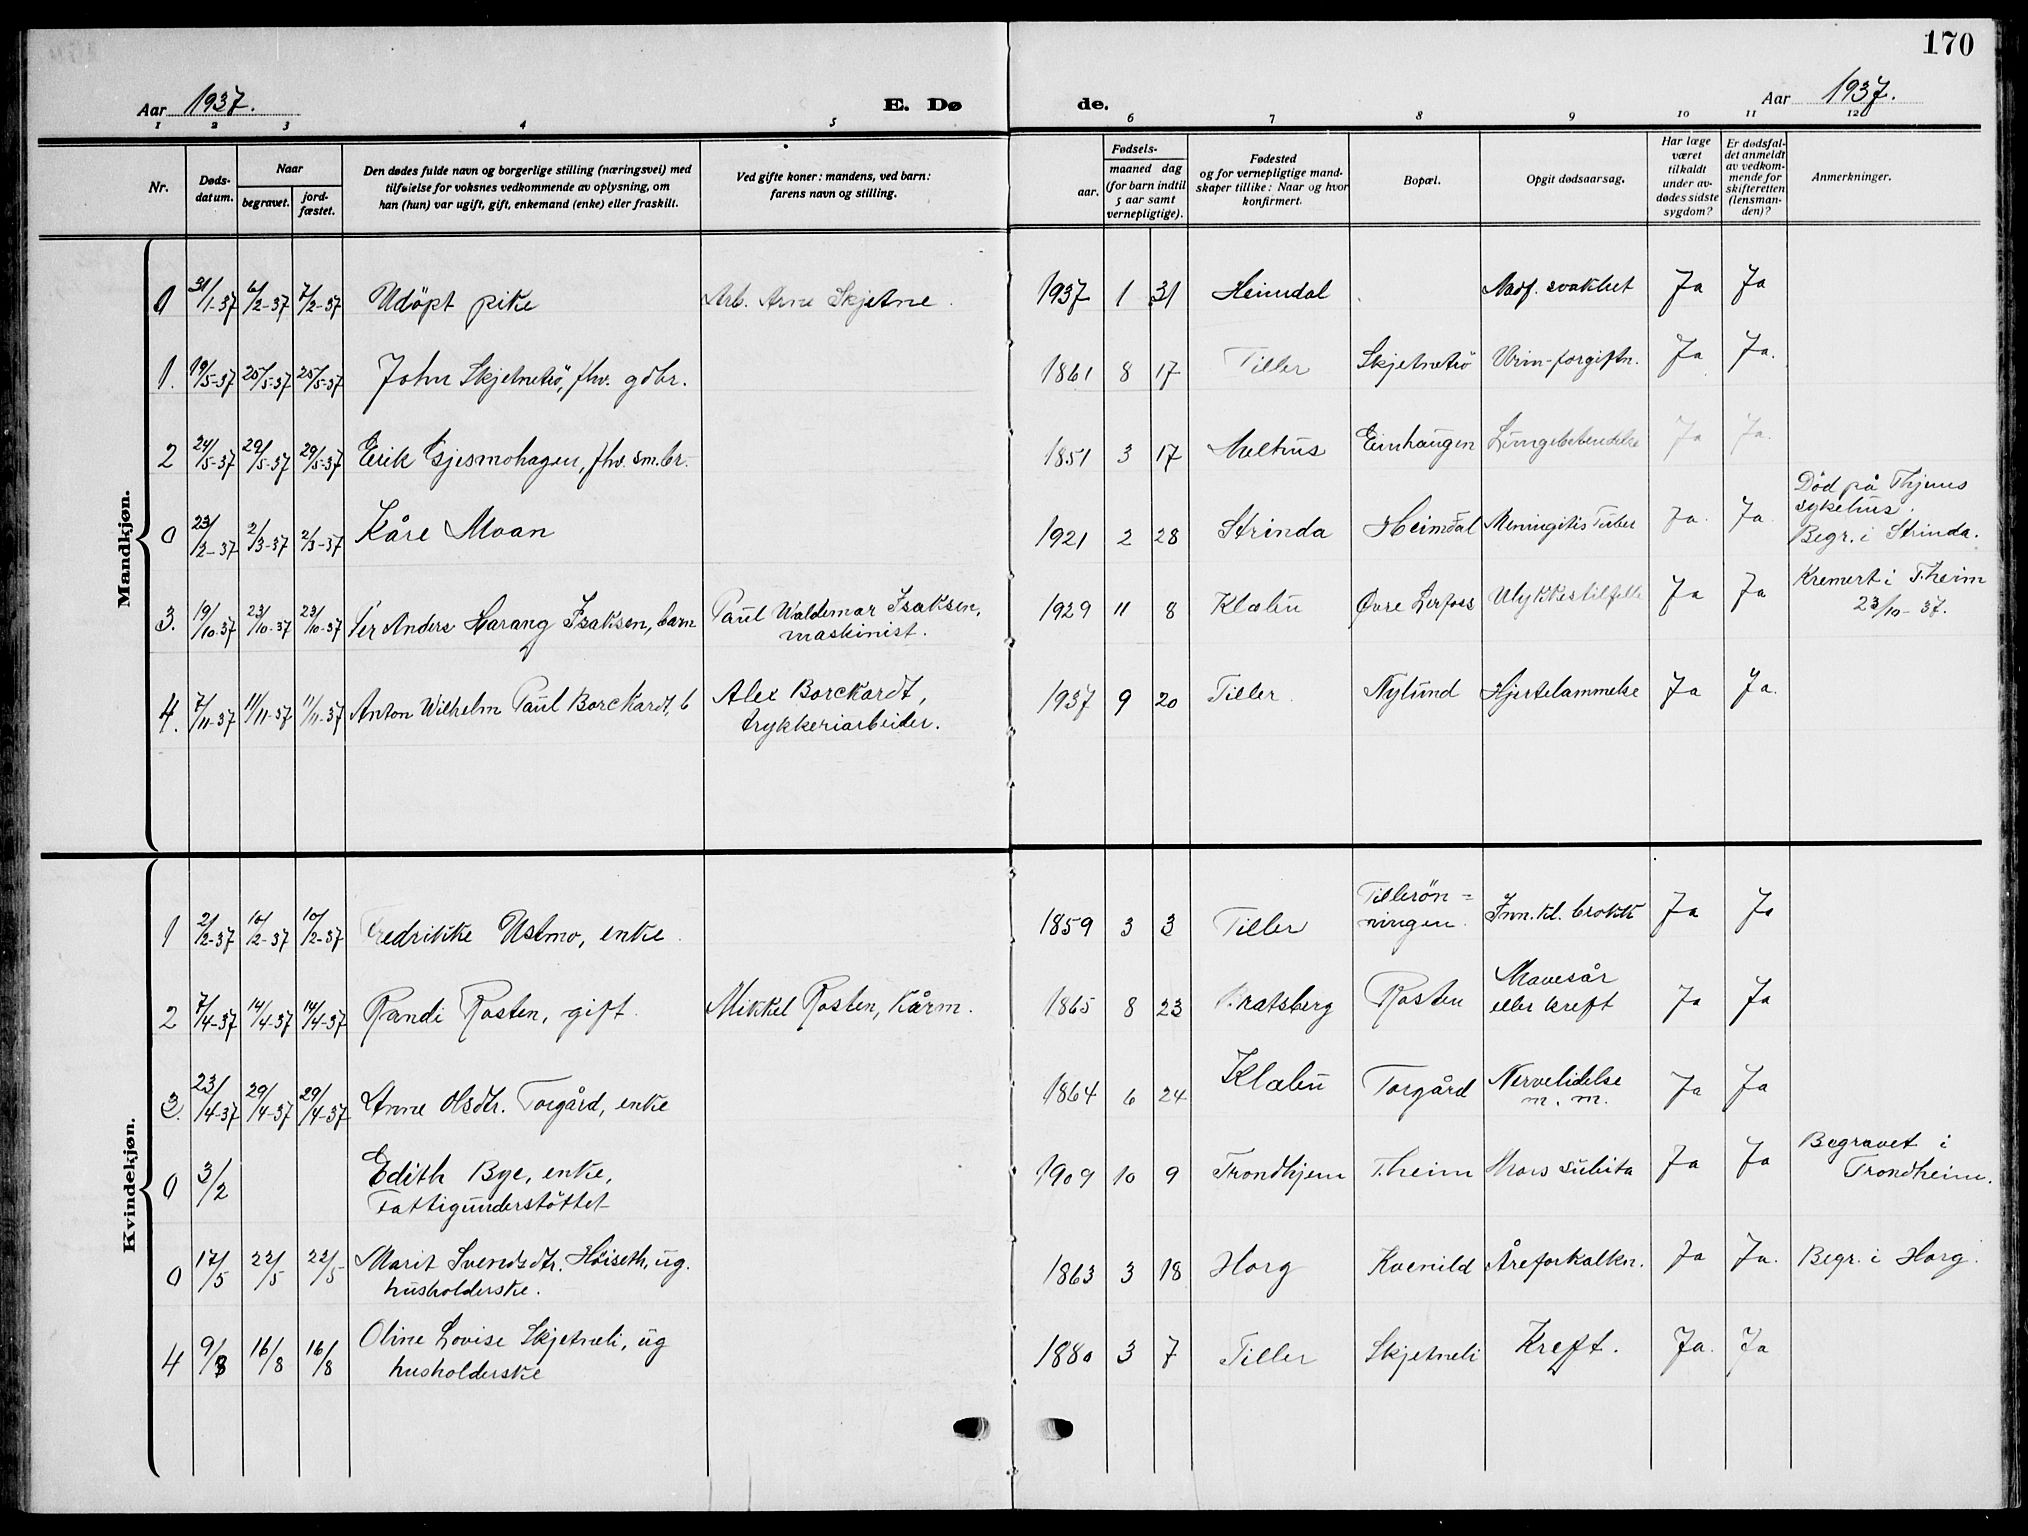 170
Aar 1937.
E. Dø
de.
Aar 1937.
1 2 3 4 5 6 7 8 9 10 11 12
Nr.
Døds-
datum.
Naar
begravet.
jord-
fæstet.
Den dødes fulde navn og borgerlige stilling (næringsvei) med
tilføielse for voksnes vedkommende av oplysning, om
han (hun) var ugift, gift, enkemand (enke) eller fraskilt.
Ved gifte koner: mandens, ved barn:
farens navn og stilling.
Fødsels-
aar.
maaned dag
(for barn indtil
5 aar samt
vernepligtige).
Fødested
og for vernepligtige mand-
skaper tillike: Naar og hvor
konfirmert.
Bopæl.
Opgit dødsaarsag.
Har læge
været
tilkaldt
under av-
dødes sidste
sygdom?
Er dødsfal-
det anmeldt
av vedkom-
mende for
skifteretten
(lensman-
den)?
Anmerkninger.
Mandkjøn.
0 31/1-37 6/2-37 7/2-37 Udöpt pike Arb. Arne Skjetne. 1937 1 31 Heimdal Medf. svakhet Ja Ja
1. 19/5-37 25/5-37 25/5-37 John Skjetnetrö, fhv. gdbr. 1861 8 17 Tiller Skjetnetrö Urin-forgiftn. Ja Ja.
2 24/5-37 29/5-37 29/5-37 Erik Gjesmohagen, fhv. sm.br. 1851 3 17 Melhus Einhaugen Lungebetendelse Ja Ja.
0 23/2-37 2/3-37 2/3-37 Kåre Moan 1921 2 28 Strinda Heimdal Meningitis Tuber Ja. Ja.
Død på Thjems
sykehus.
Begr. i Strinda.
3. 19/10-37 23/10-37 23/10-37 Per Anders Harang Isaksen, barn Paul Waldemar Isaksen,
maskinist.
1929 11 8 Klæbu Øvre Lerfoss Ulykkestilfelle Ja Ja
Kremert i T.heim
23/10-37.
4. 7/11-37 11/11-37 11/11-37 Anton Wilhelm Paul Borckardt, b Alex Borckardt,
trykkeriarbeider.
1937 9 20 Tiller. Nylund Hjertelammelse Ja Ja.
Kvindekjøn.
1 2/2-37 10/2-37 10/2-37 Fredrikke Ustmo, enke. 1859 3 3 Tiller
Tillerön=
ningen.
Inn.kl. brokk Ja Ja
2 7/4-37 14/4-37 14/4-37 Randi Rosten, gift. Mikkel Rosten, kårm. 1865 8 23 Bratsberg Rosten
Mavesår
eller kreft
Ja Ja
3. 23/4-37 29/4-37 29/4-37 Anne Olsdtr. Torgård, enke 1864 6 24 Klæbu Torgård
Nervelidelse
m. m.
Ja Ja
0 3/2 Edith Bye, enke,
Fattigunderstöttet
1909 10 9 Trondhjem T.heim Mors subita Ja Ja
Begravet i
Trondheim.
0 17/5 22/5 22/5 Marit Svendsdtr. Høiseth, ug.
husholderske.
1863 3 18 Horg Kvenild Åreforkalkn. Ja Ja. Begr. i Horg.
4 9/8 16/8 16/8 Oline Lovise Skjetneli, ug
husholderske
1880 3 7 Tiller Skjetneli Kreft. Ja. Ja